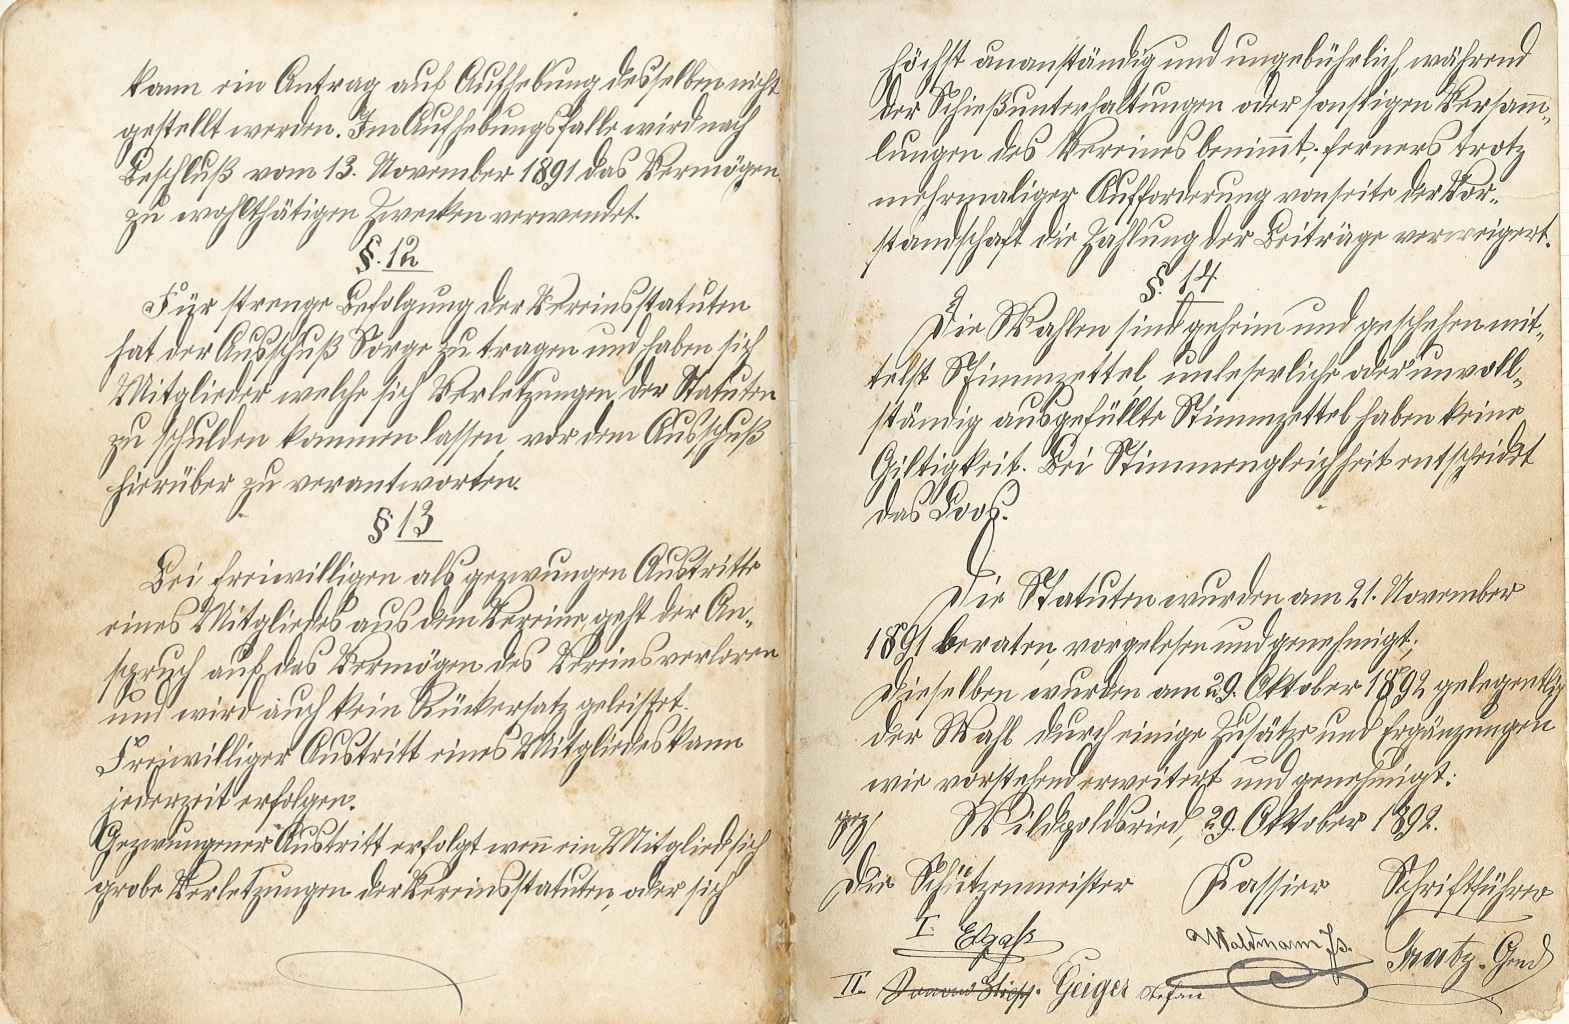 kann ein Antrag auf Aufhebung desselben nicht
gestellt werden. Im Aufhebungsfalle wird nach
Beschluß vom 13. November 1891 das Vermögen
zu wohlthätigen Zwecken verwendet.
§. 12
Für strenge Befolgung der Vereinsstatuten
hat der Ausschuß Sorge zu tragen und haben sich
Mitglieder welche sich Verletzungen der Statuten
zu schulden kommen lassen, vor dem Ausschuß
hierüber zu verantworten.
§ 13
Bei freiwilligen als gezwungen Austritte
eines Mitgliedes aus dem Vereine geht der An-
spruch auf das Vermögen des Vereins verloren
und wird auch kein Rückersatz geleistet.
Freiwilliger Austritt eines Mitgliedes kann
jederzeit erfolgen.
Gezwungener Austritt erfolgt wenn ein Mitglied sich
grobe Verletzungen der Vereinsstatuten, oder sich
höchst unanständig und ungebührlich, während
der Schießunterhaltungen oder sonstigen Versamm-
lungen des Vereines benimmt, ferners trotz
mehrmaliger Aufforderung vonseite der Vor-
standschaft die Zahlung der Beiträge verweigert.
§. 14
Die Wahlen sind geheim und geschehen mit-
telst Stimmzettel, unleserliche oder unvoll-
ständig ausgefüllte Stimmzettel haben keine
Giltigkeit. Bei Stimmengleichheit entscheidet
das Loos.
Die Statuten wurden am 21. November
1891 beraten, vorgelesen und genehmigt;
Dieselben wurden am 29. Oktober 1892 gelegentlich
der Wahl durch einige Zusätze und Ergänzungen
wie vorstehend erweitert und genehmigt:
gez/ Wildpoldsried, 29. Oktober 1892.
Die Schützenmeister Kassier Schriftführer
I.
Waldmann Js.
II. Geiger Stefan